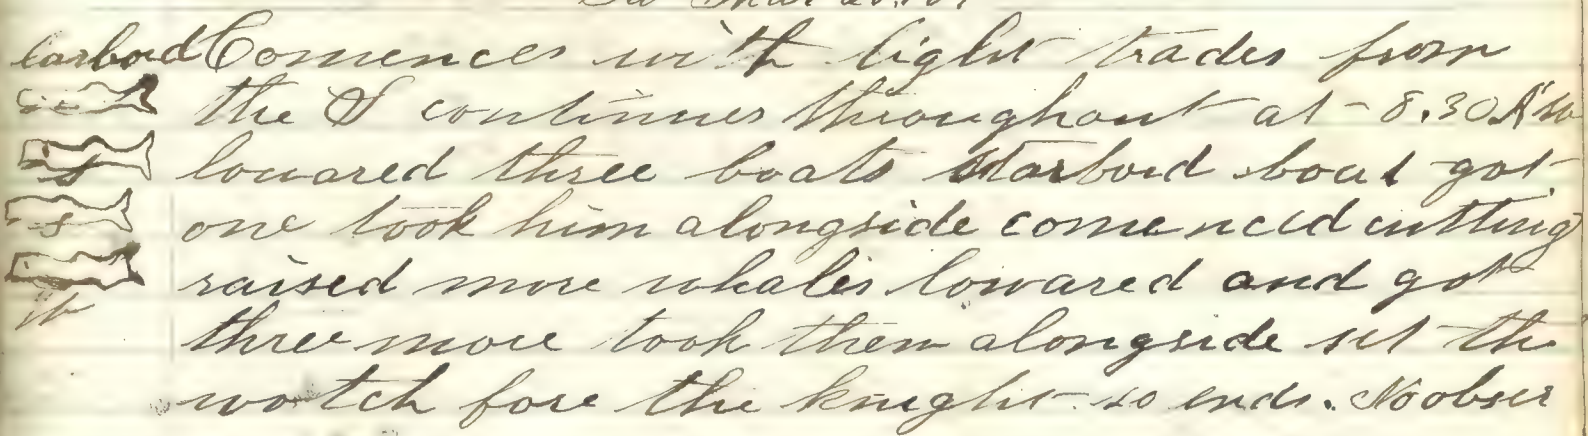 larbord Comences with light trades from
the S continues throughout at 8.30 A m
lowared three boats starbord boat got
one took him alongside comenced cutting
raised more whales lowared and got
three more took them alongside set the
watch fore the knight so ends. No obser